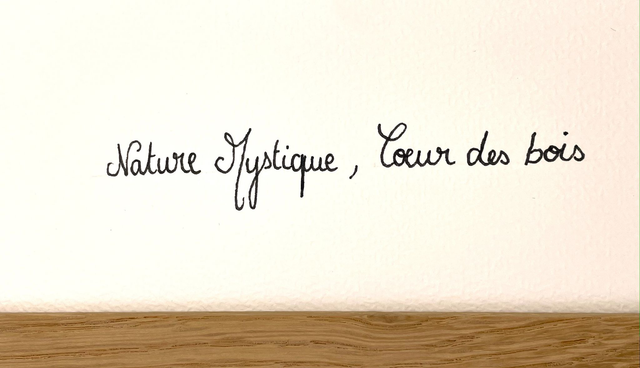 Nature Mystique, Cœur des bois